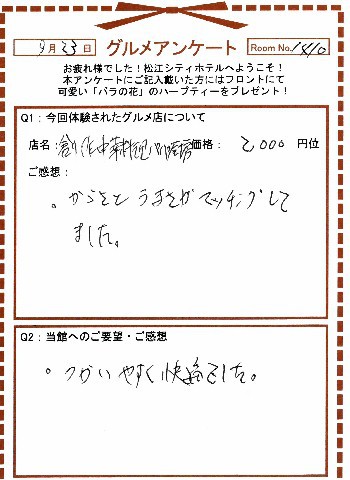 9月23日 グルメアンケート Room No. 1410
お疲れ様でした！松江シティホテルへようこそ！
本アンケートにご記入戴いた方にはフロントにて
可愛い「バラの花」のハーブティーをプレゼント！
Q1：今回体験されたグルメ店について
店名：創作中華 価格： 2000 円位
ご感想：
。からさと うまさが マッチングして
ました。
Q2：当館へのご要望・ご感想
。つかいやすく快適でした。